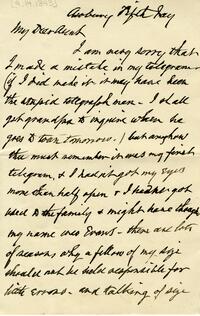 Fifth Day
My Dear Aunt
I am very sorry that
I made a mistake in my telegram
if I did make it it may have been
the stupid telegraph man. I shall
get Grandpa to inquire when he
goes to town tomorrow. but anyhow
thee must remember it was my first
telegram, & I hadn't got my eyes
more than half open & I hadn't got
used to the family & might have thought
my name was Evans - there are lots
of reasons why a fellow of my size
should not be held responsible for
little errors - and talking of size